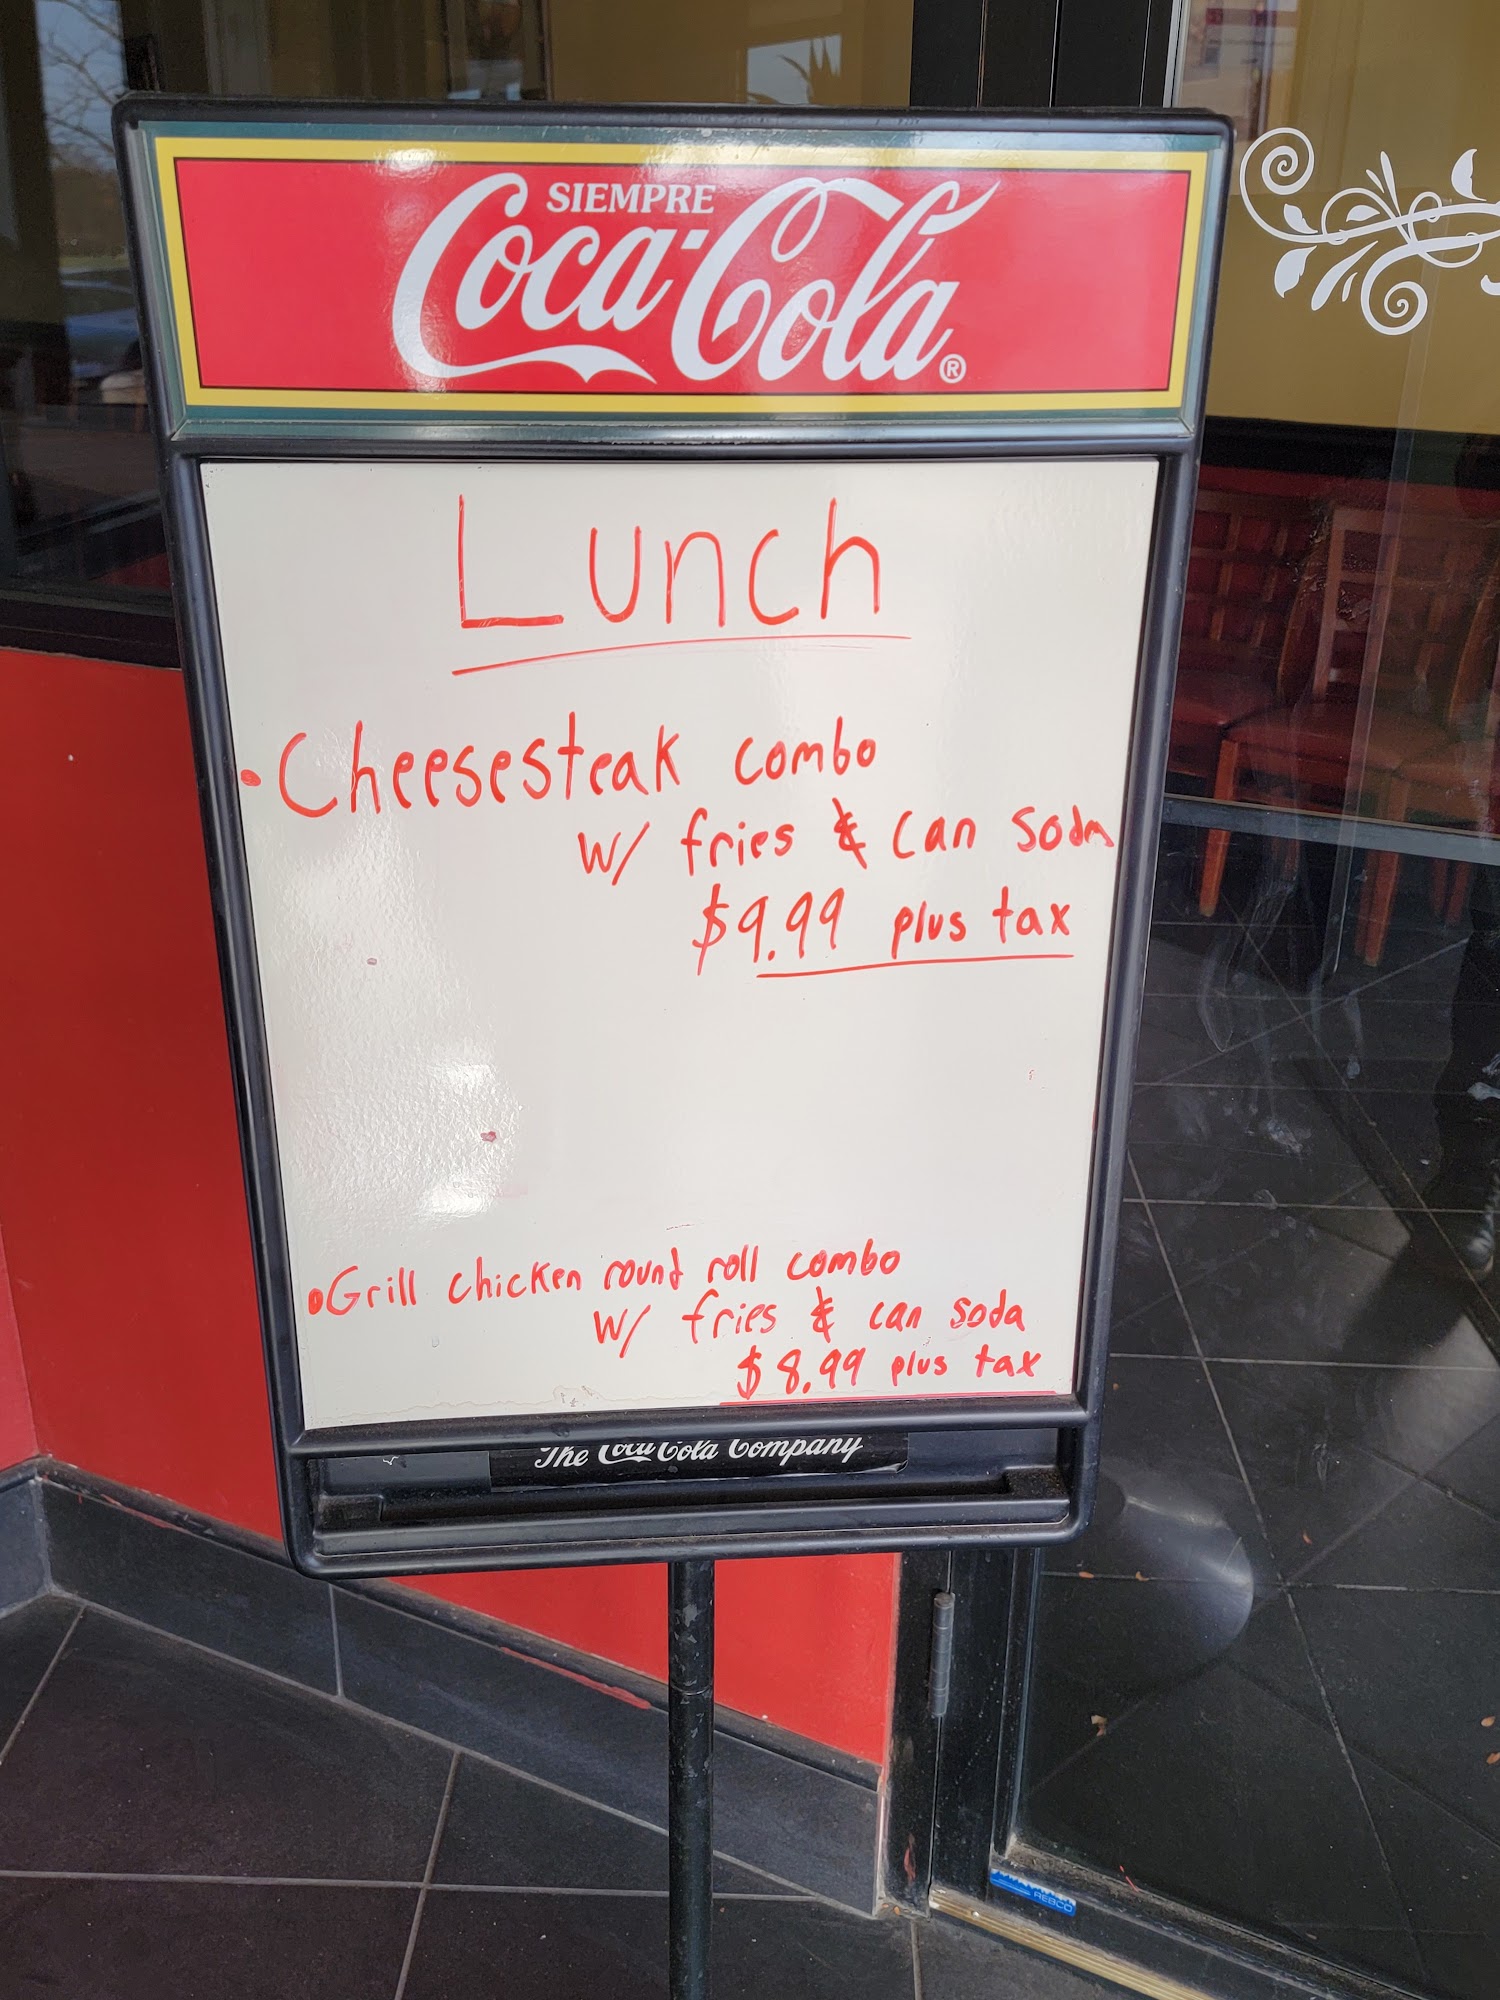 SIEMPRE
Coca-Cola®
Lunch
• Cheesesteak combo
w/ fries & can soda
$9.99 plus tax
• Grill chicken round roll combo
w/ fries & can soda
$8.99 plus tax
The Coca-Cola Company
REBCO